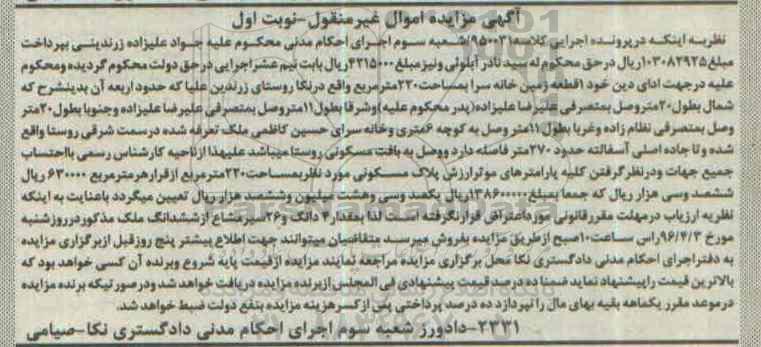 آگهی مزایده اموال غیرمنقول-نوبت اول
نظربه اینکه درپرونده اجرایی کلاسه ۹۵۰۰۳۱/شعبه سوم اجرای احکام مدنی محکوم علیه جواد علیزاده زرندینی بپرداخت
مبلغ۱۰۳۰۸۲۹۲۵ریال درحق محکوم له سید نادر آیلوئی ونیز مبلغ۴۲۱۵۰۰۰ریال بابت نیم عشراجرایی درحق دولت محکوم گردیده ومحکوم
علیه درجهت ادای دین خود ۱قطعه زمین خانه سرا بمساحت۲۲۰مترمربع واقع درنکا روستای زرندین علیا که حدود اربعه آن بدینشرح که
شمال بطول۲۰متروصل بمتصرفی علیرضا علیزاده(پدر محکوم علیه)وشرقا بطول۱۱متروصل بمتصرفی علیرضا علیزاده وجنوبا بطول۲۰متر
وصل بمتصرفی نظام زاده وغربا بطول۱۱متر وصل به کوچه ۶متری وخانه سرای حسین کاظمی ملک تعرفه شده درسمت شرقی روستا واقع
شده وتا جاده اصلی آسفالته حدود ۲۷۰متر فاصله دارد ووصل به بافت مسکونی روستا میباشد علیهذا ازناحیه کارشناس رسمی بااحتساب
جمیع جهات ودرنظرگرفتن کلیه پارامترهای موثرارزش پلاک مسکونی مورد نظربمساحت۲۲۰مترمربع ازقرارهرمترمربع ۶۳۰۰۰۰ ریال
ششصد وسی هزار ریال که جمعا بمبلغ۱۳۸۶۰۰۰۰۰ریال یکصد وسی وهشت میلیون وششصد هزار ریال تعیین میگردد باعنایت به اینکه
نظریه ارزیاب درمهلت مقررقانونی مورداعتراض قرارنگرفته است لذا بمقدار۴ دانگ و۲۶سیرمشاع ازششدانگ ملک مذکوردرروزشنبه
مورخ ۹۶/۴/۳راس ساعت۱۰صبح ازطریق مزایده بفروش میرسد متقاضیان میتوانند جهت اطلاع بیشتر پنج روزقبل ازبرگزاری مزایده
به دفتراجرای احکام مدنی دادگستری نکا محل برگزاری مزایده مراجعه نمایند مزایده ازقیمت پایه شروع وبرنده آن کسی خواهد بود که
بالاترین قیمت راپیشنهاد نماید ضمنا ده درصد قیمت پیشنهادی فی المجلس ازبرنده مزایده دریافت خواهد شد ودرصورتیکه برنده مزایده
درموعد مقرر یکماهه بقیه بهای مال را نپردازد ده درصد پرداختی پس ازکسرهزینه مزایده بنفع دولت ضبط خواهد شد.
۲۳۳۱-دادورز شعبه سوم اجرای احکام مدنی دادگستری نکا-صیامی